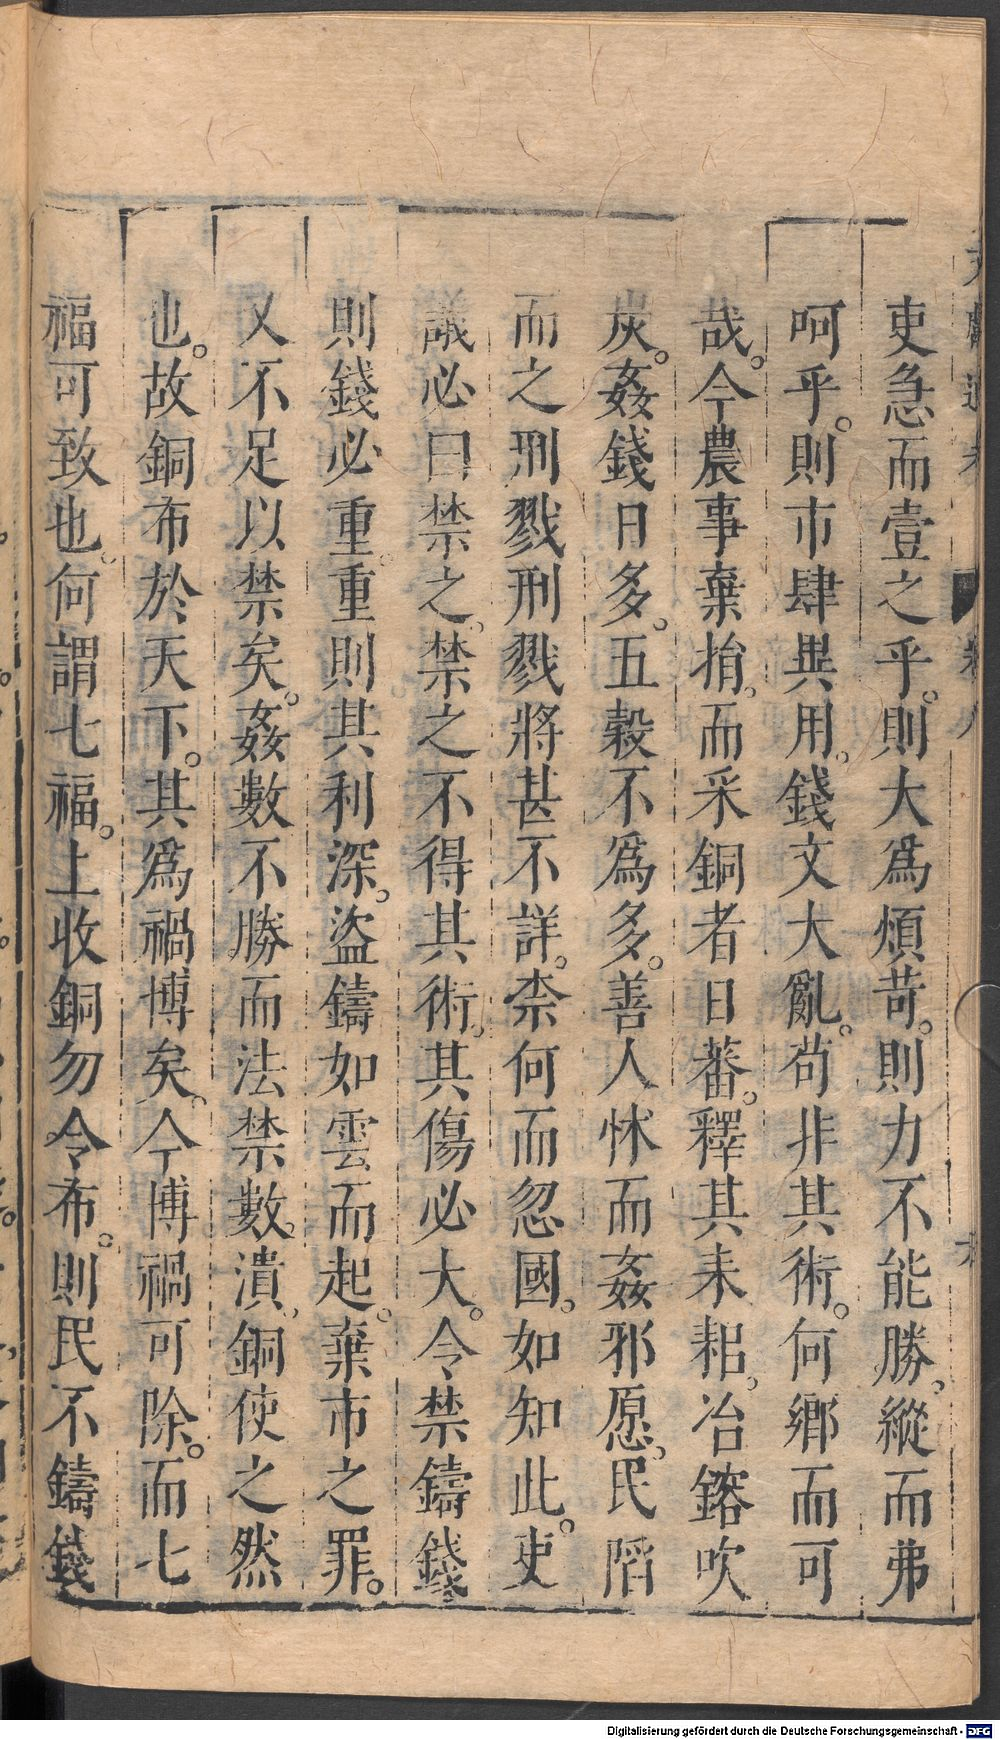 吏急而壹之乎。則大爲煩苛。則力不能勝。縱而弗
呵乎。則市肆異用。錢文大亂。苟非其術。何鄉而可
哉。今農事棄捐。而采銅者日蕃。釋其耒耜。冶鎔吹
炭。姦錢日多。五穀不爲多。善人怵而姦邪愿。民陷
而之刑戮刑戮將甚不詳。柰何而忽國。如知此。吏
議必曰禁之。禁之不得其術。其傷必大。令禁鑄錢
則錢必重。重則其利深。盜鑄如雲而起。棄市之罪。
又不足以禁矣。姦數不勝而法禁數。潰。銅使之然
也。故銅布於天下。其爲禍博矣。今博禍可除。而七
福可致也。何謂七福。上收銅勿令布。則民不鑄錢
Digitalisierung gefördert durch die Deutsche Forschungsgemeinschaft - DFG